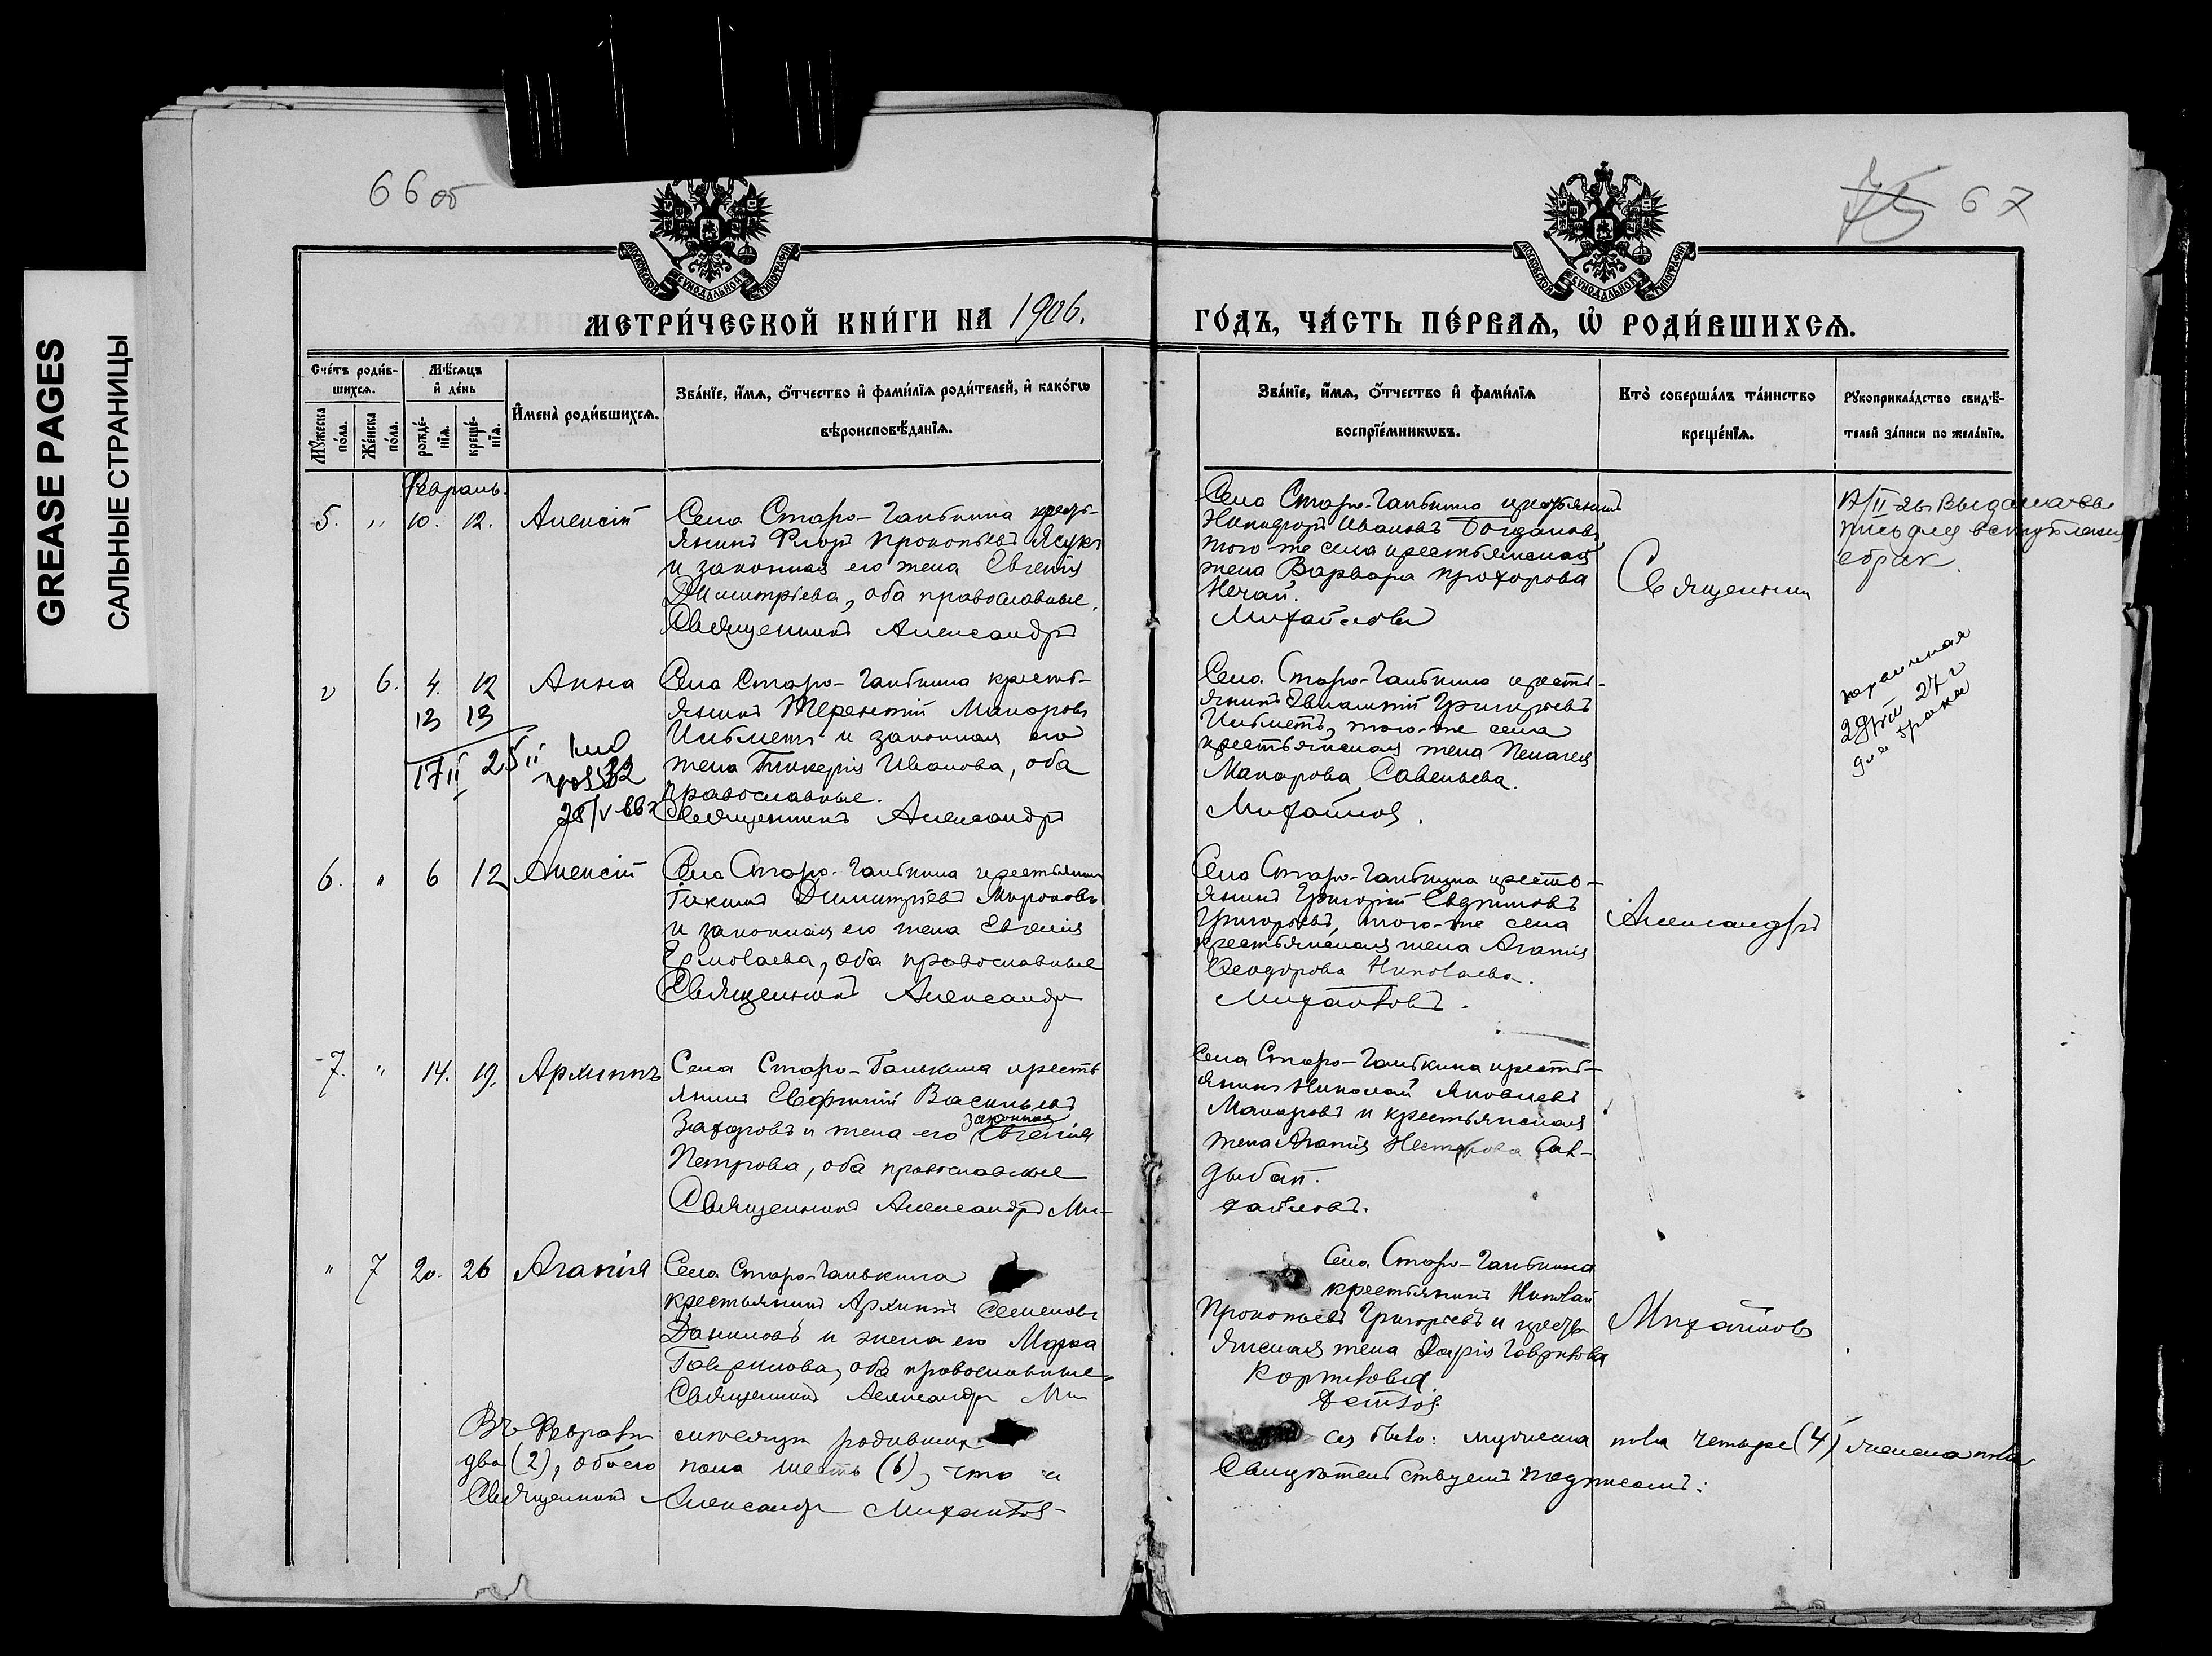 GREASE PAGES
САЛЬНЫЕ СТРАНИЦЫ
66 об
75 67
МОСКОВСКОЙ СѴНОДАЛЬНОЙ ТИПОГРАФІИ
МОСКОВСКОЙ СѴНОДАЛЬНОЙ ТИПОГРАФІИ
МЕТРИ́ЧЕСКОЙ КНИ́ГИ НА 1906.
ГО́ДЪ, ЧА́СТЬ ПЕ́РВАѦ, Ѡ҆ РОДИ́ВШИХСѦ.
Сче́тъ роди́в-
шихсѧ.
Мѹ́жеска по́ла.
Же́нска по́ла.
Мѣ́сѧцъ
и҆ де́нь
рожде́-
нїѧ.
креще́-
нїѧ.
И҆мена̀ роди́вшихсѧ.
Зва́нїе, и҆́мѧ, ѻ҆́тчество и҆ фами́лїѧ роди́телей, и҆ како́гѡ
вѣроисповѣ́данїѧ.
Зва́нїе, и҆́мѧ, ѻ҆́тчество и҆ фами́лїѧ
воспрїе́мникѡвъ.
Кто̀ соверша́лъ та́инство
креще́нїѧ.
Рꙋкоприкла́дство свидѣ́-
телей за́писи по жела́нїю.
Февраль.
5. " 10. 12. Алексій
Села Старо-Ганькина кресть-
янинъ Флоръ Прокопьевъ Ясукъ
и законная его жена Евгенія
Димитріева, оба православные.
Священникъ Александръ
Села Старо-Ганькина крестьянинъ
Никифоръ Ивановъ Богдановъ
того-же села крестьянская
жена Варвара Прохорова
Нечай.
Михайловъ
Священникъ
" 6. 4. 12 Анна
13 13
17 II 25 II
32
Села Старо-Ганькина кресть-
янинъ Терентій Макаровъ
и законная его
жена Гликерія Иванова, оба
православные.
Священникъ Александръ
Села Старо-Ганькина кресть-
янинъ Григорьевъ
того-же села
крестьянская жена Пелагея
Макарова Савельева.
Михайловъ.
для брака
6. " 6 12 Алексій
Села Старо-Ганькина крестьянинъ
Іакимъ Димитріевъ Мироновъ
и законная его жена Евгенія
Ермолаева, оба православные
Священникъ Александръ
Села Старо-Ганькина кресть-
янинъ Григорій Евдокимовъ
Григорьевъ, того-же села
крестьянская жена Агапія
Ѳеодорова Николаева.
Михайловъ.
Александръ
7. " 14. 19. Архиппъ
Села Старо-Ганькина кресть
янинъ Евфимій Васильевъ
Захаровъ и жена его законная Евгенія
Петрова, оба православные
Священникъ Александръ Ми-
Села Старо-Ганькина кресть-
янинъ Николай Яковлевъ
Макаровъ и крестьянская
жена Агапія Нестерова Сав-
дыбай.
хайловъ.
" 7 20. 26 Агапія
Села Старо-Ганькина
крестьянинъ Архиппъ Семеновъ
Даниловъ и жена его Марѳа
Гаврилова, оба православные
Священникъ Александръ Ми
Села Старо-Ганькина
крестьянинъ Николай
Прокопьевъ Григорьевъ и кресть
янская жена Дарія Гаврилова
Корнилова
Михайловъ
Въ Февралѣ мѣсяцѣ родивших
ся было: мужеска пола четыре (4) женска пола
два (2), обоего пола шесть (6), что и
свидѣтельствуемъ подписомъ:
Священникъ Александръ Михайловъ